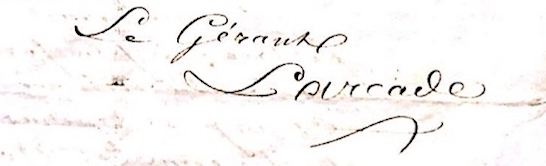 Le Gérant
Larcade